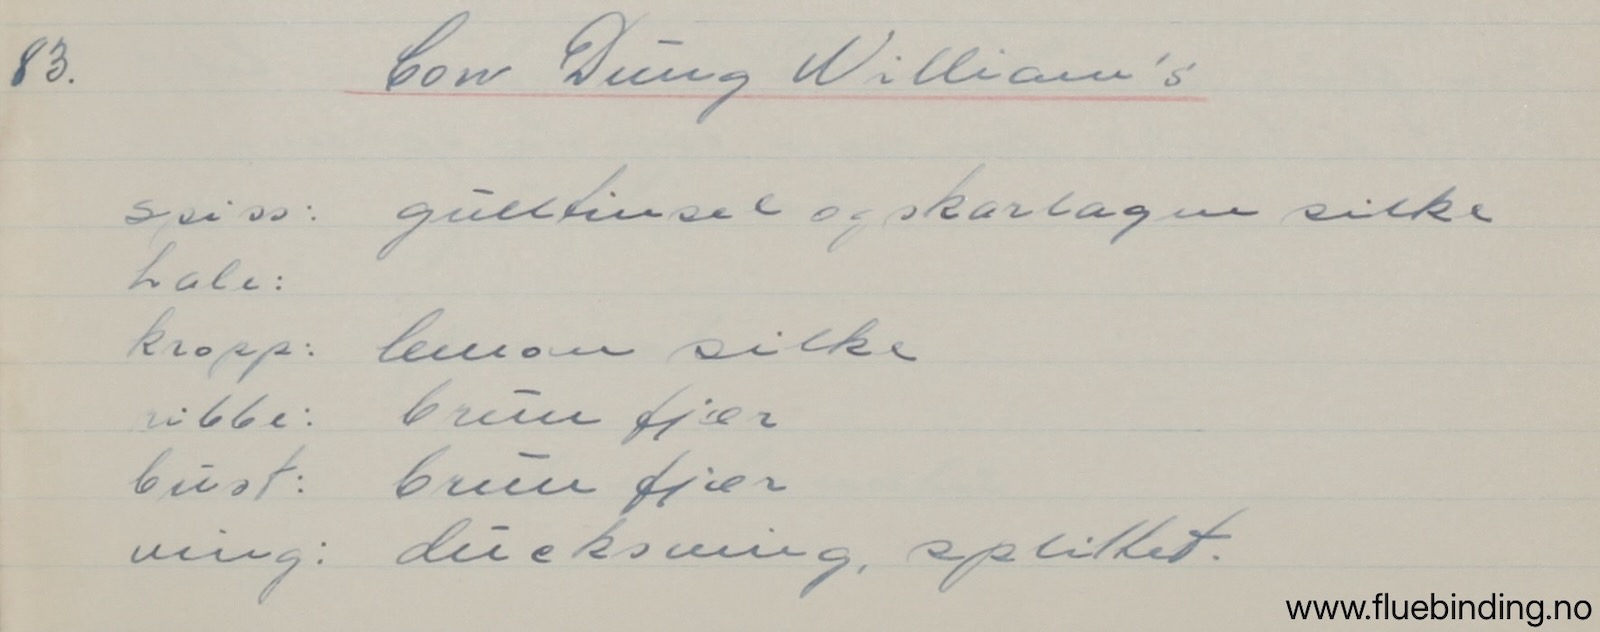 83. Cow Dung William's
spiss: gulltinsel og skarlagen silke
hale:
kropp: lemon silke
ribbe: brun fjær
bust: brun fjær
ving: ducksving, splittet.
www.fluebinding.no